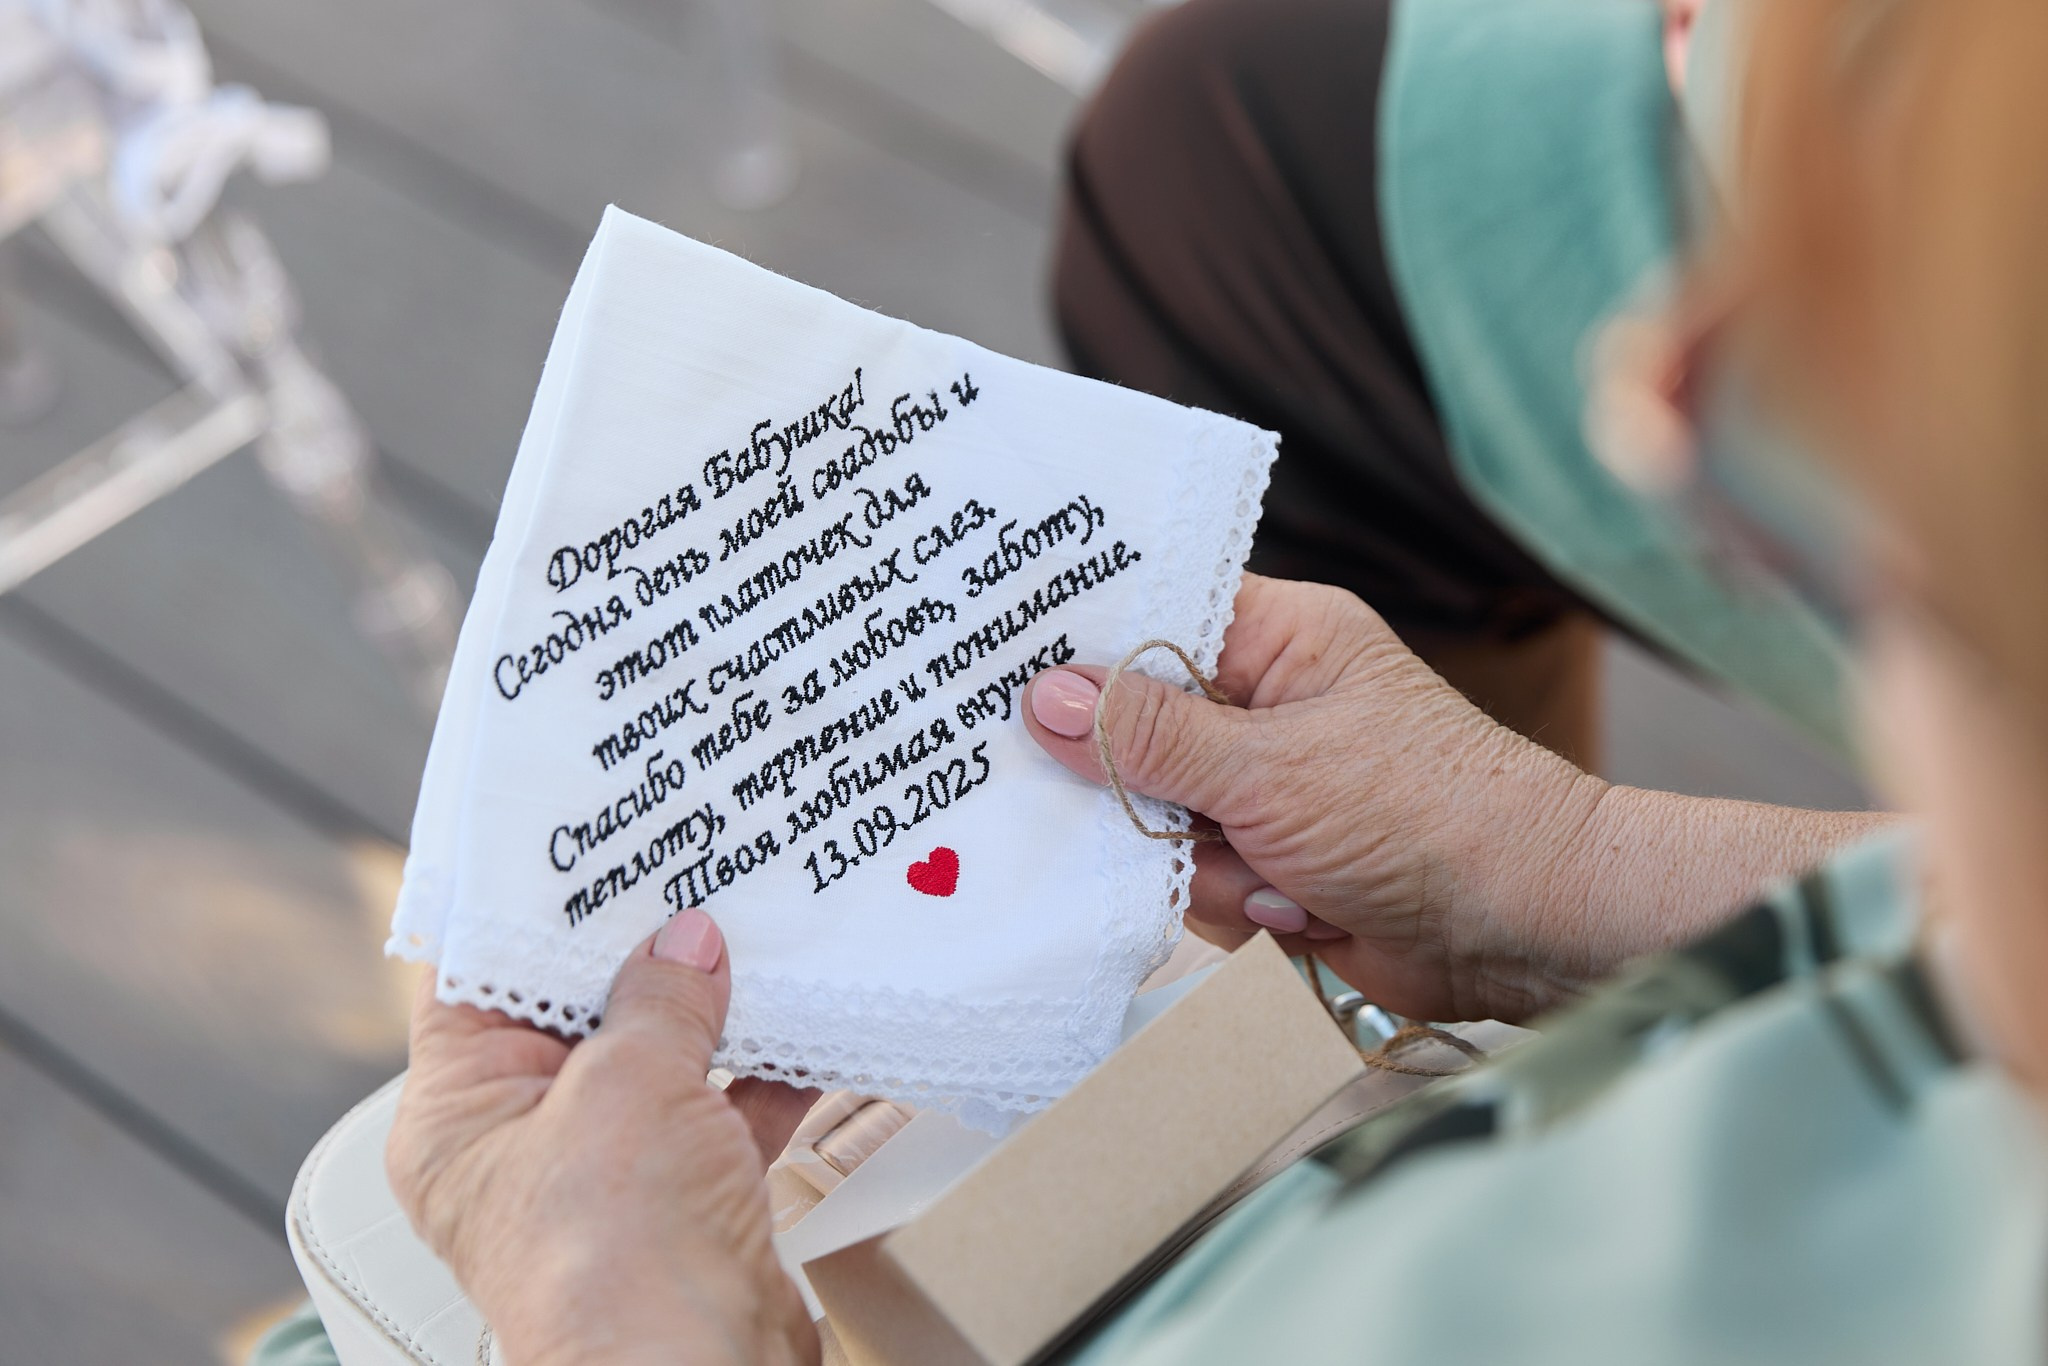 Дорогая Бабушка!
Сегодня день моей свадьбы и
этот платочек для
твоих счастливых слез.
Спасибо тебе за любовь, заботу,
теплоту, терпение и понимание.
Твоя любимая внучка
13.09.2025